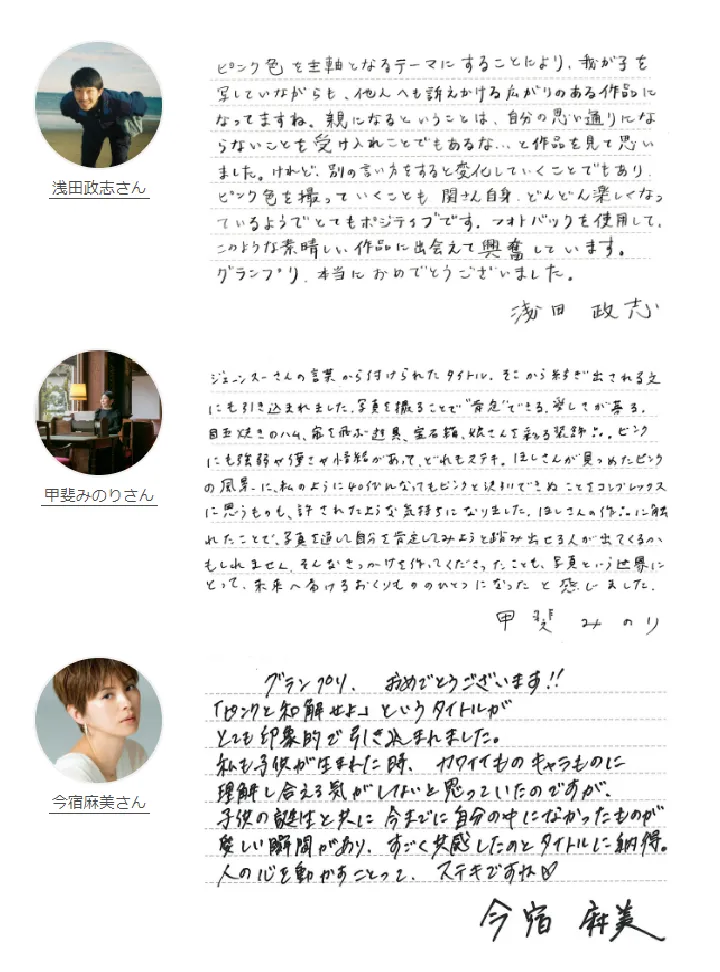 ピンク色を主軸となるテーマにすることにより、我が子を
写していながらも、他人へも訴えかける広がりのある作品に
なってますね。親になるということは、自分の思い通りにな
らないことを受け入れことでもあるな…と作品を見て思い
ました。けれど、別の言い方をすると変化していくことでもあり、
ピンク色を撮っていくことも関さん自身、どんどん楽しくなっ
ているようでとてもポジティブです。フォトバックを使用して、
このような素晴しい作品に出会えて興奮しています。
グランプリ、本当におめでとうございました。
浅田 政志
浅田政志さん
ジェーンスーさんの言葉から付けられたタイトル。そこから紡ぎ出される文
にも引き込まれました。写真を撮ることで“肯定”できる。愛しさが募る。
目玉焼きのハム、空を飛ぶ遊具、宝石箱、娘さんを彩る装飾品。ピンク
にも強弱や優さや情緒があって、どれもステキ。ほしさんが見つめたピンク
の風景に、私のように40代になってもピンクと決別できぬことをコンプレックス
に思うものも、許されたような気持ちになりました。ほしさんの作品に触
れたことで、写真を通して自分を肯定してみようと踏み出せる人が出てくるか
もしれません。そんなきっかけを作ってくださったことも、写真という世界に
とって、未来へ届けるおくりもののひとつになったと感じました。
甲斐 みのり
甲斐みのりさん
グランプリ、おめでとうございます!!
「ピンクと和解せよ」というタイトルが
とても印象的で引き込まれました。
私も子供が生まれた時、カワイイものキャラものに
理解し合える気がしないと思っていたのですが、
子供の誕生と共に今までに自分の中になかったものが
愛しい瞬間があり、すごく共感したのとタイトルに納得。
人の心を動かすことって、ステキですね♡
今宿 麻美
今宿麻美さん